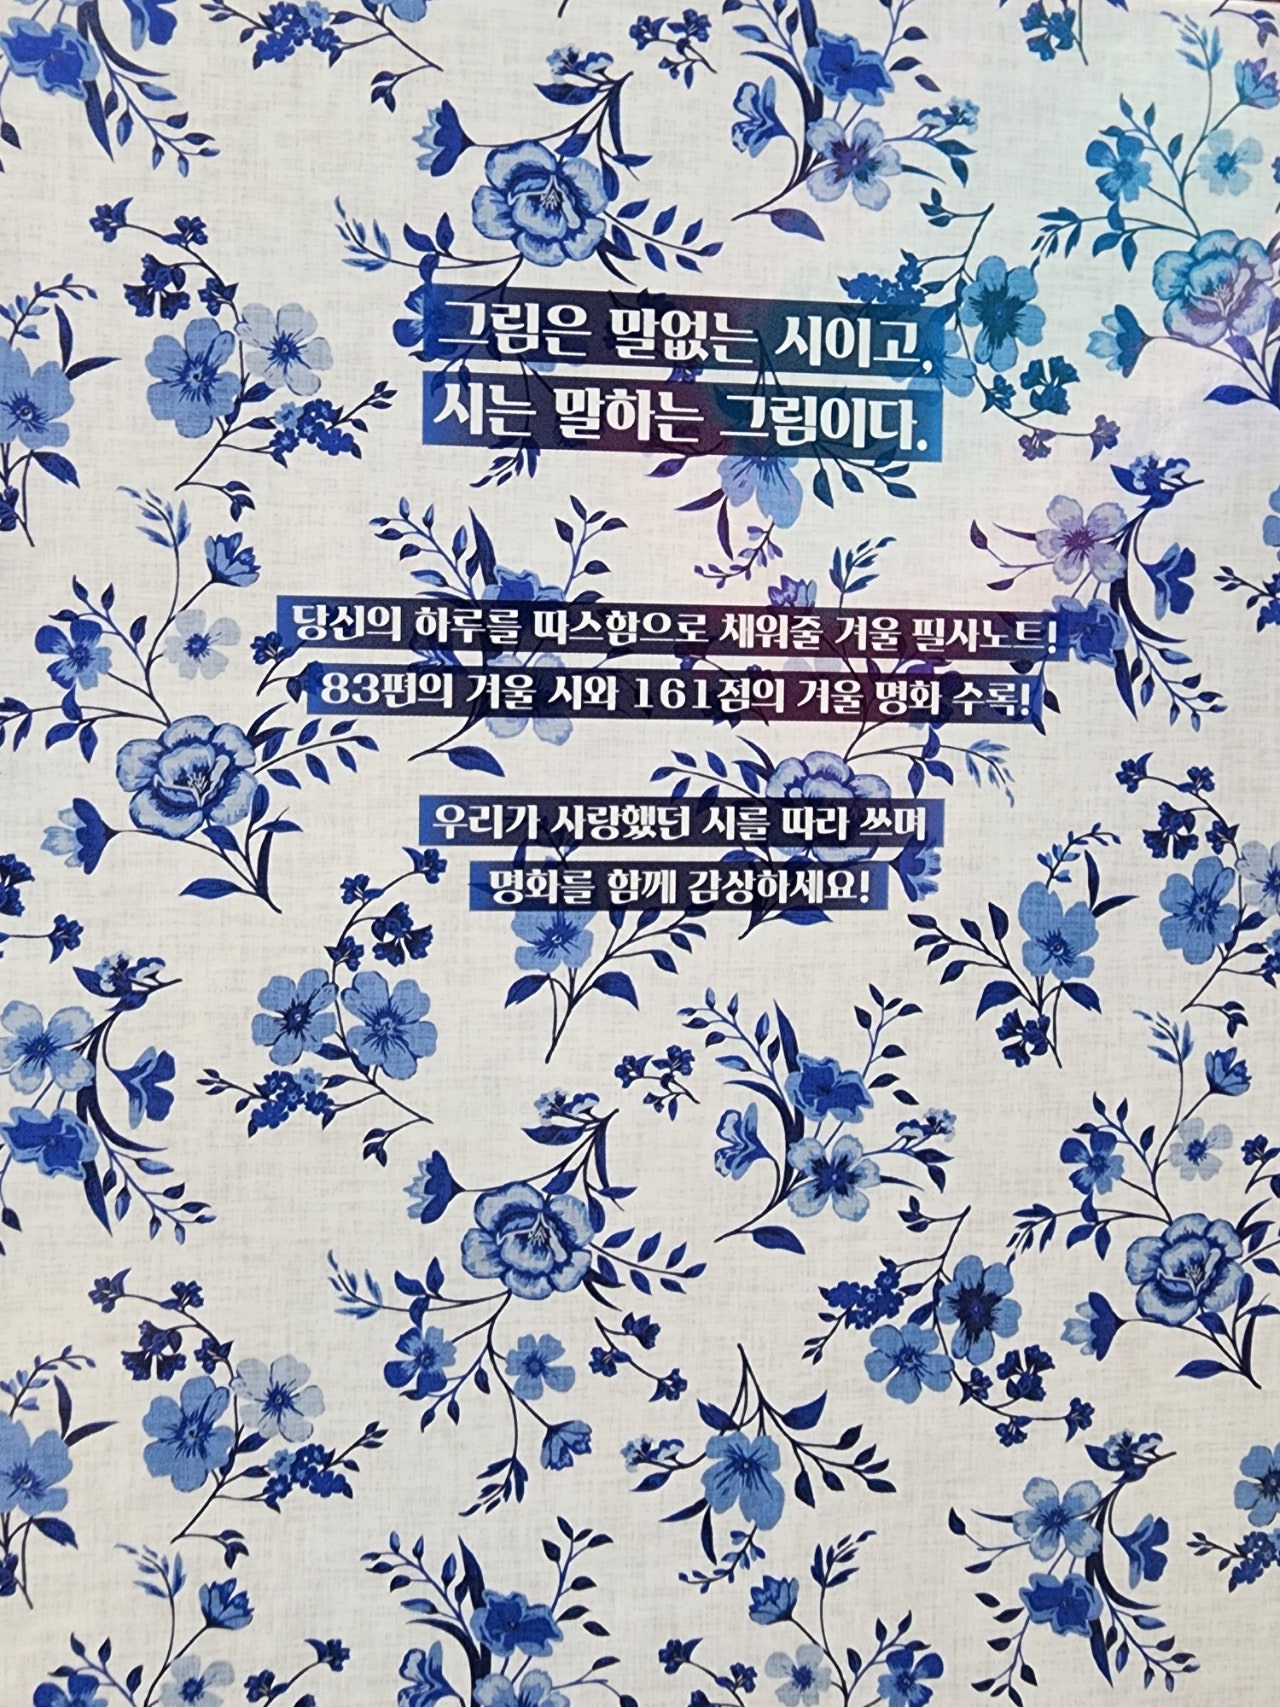 그림은 말없는 시이고,
시는 말하는 그림이다.
당신의 하루를 따스함으로 채워줄 겨울 필사노트!
83편의 겨울 시와 161점의 겨울 명화 수록!
우리가 사랑했던 시를 따라 쓰며
명화를 함께 감상하세요!